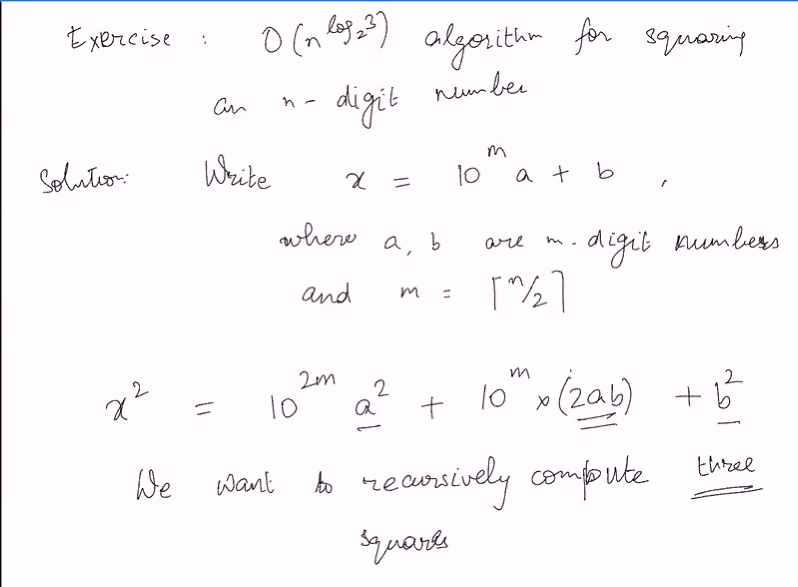 Exercise : O(n^log₂3) algorithm for squaring
an n-digit number
Solution: Write x = 10^m a + b ,
where a, b are m-digit numbers
and m = ⌈n/2⌉
x² = 10^2m a² + 10^m × (2ab) + b²
We want to recursively compute three
squares